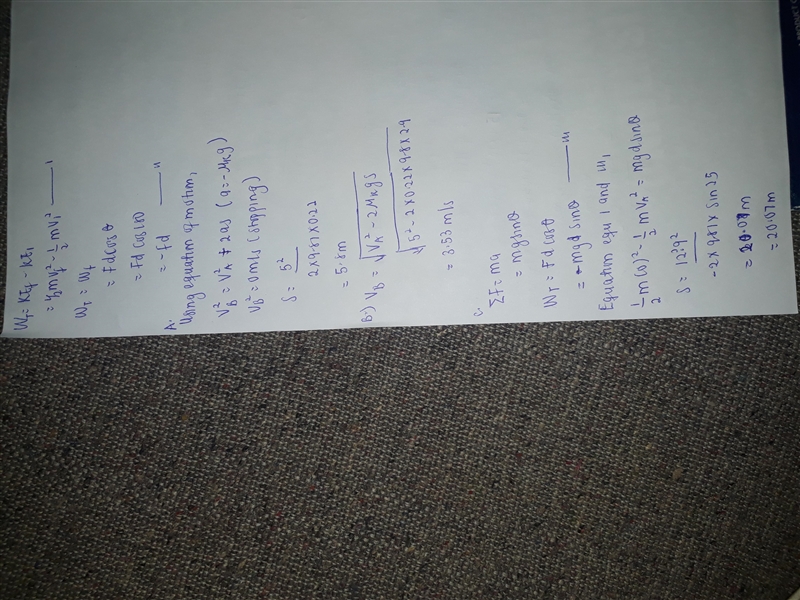 W_T = KE_f - KE_i
= ½mv_f² - ½mv_i² —— I
W_T = W_f
= Fd cosθ
= Fd cos 180
= -Fd —— II
A.
Using equation of motion,
V_B² = V_A² + 2as (a = -μ_k g)
V_B² = 0m/s (stopping)
S = 5²
2 x 9.81 x 0.22
= 5.8m
B.) V_B = √V_A - 2μ_k gs
√5² - 2 x 0.22 x 9.8 x 2.9
= 3.53 m/s
C.
ΣF = ma
= mg sinθ
W_T = Fd cosθ
= -mgd sinθ —— III
Equation equ 1 and III,
½m(0)² - ½mV_A² = mgd sinθ
S = 12.9²
-2 x 9.81 x sin 25
= 20.07m
= 20.07m